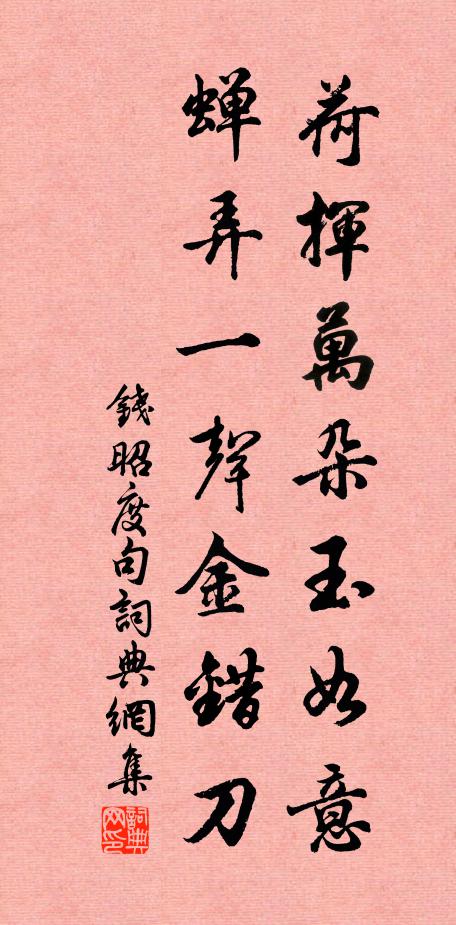 荷揮萬朵玉如意
蟬弄一聲金錯刀
錢昭度句詞典網集
詞典網印